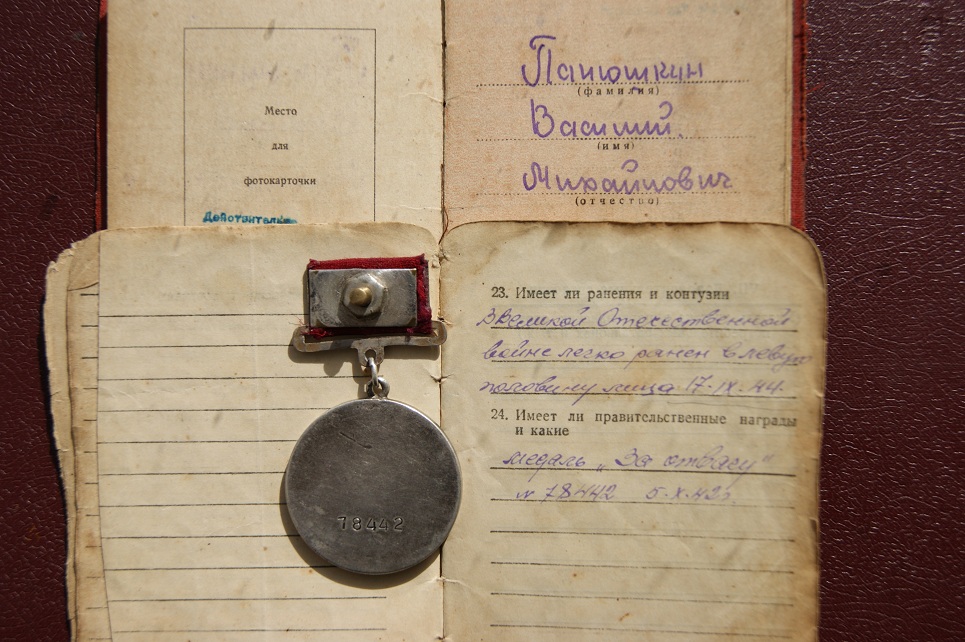 Место
для
фотокарточки
Действительно
Панюшкин
(фамилия)
Василий.
(имя)
Михайлович
(отчество)
78442
23. Имеет ли ранения и контузии
В Великой Отечественной
войне легко ранен в левую
половину лица 17.IX.44.
24. Имеет ли правительственные награды
и какие
медаль „За отвагу"
№ 78442 5.X.42г